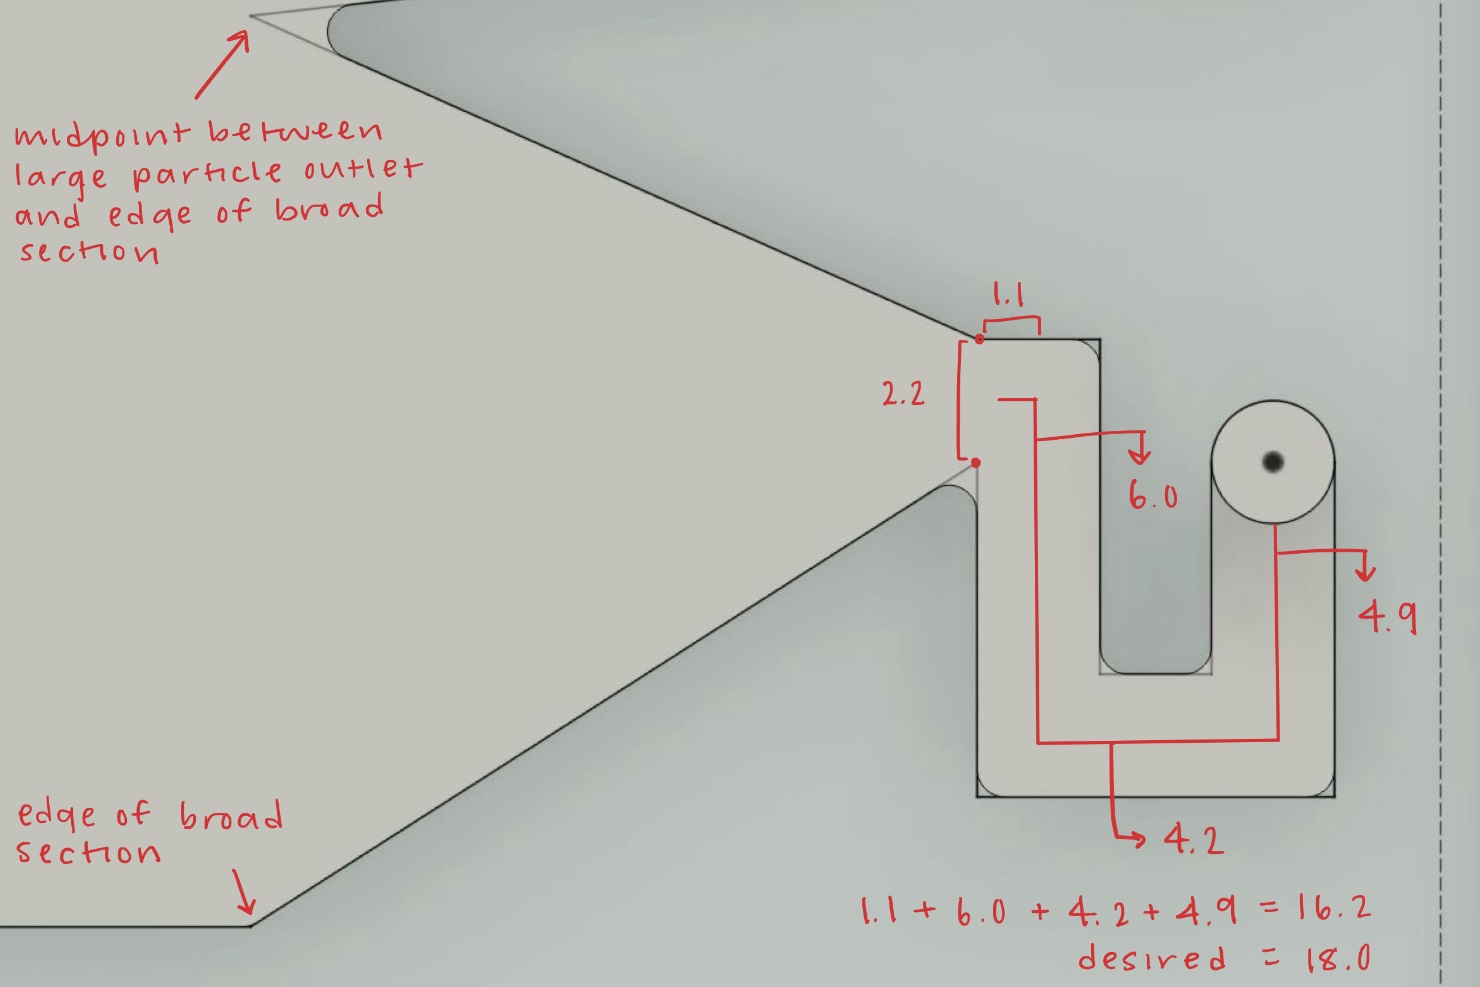 midpoint between
large particle outlet
and edge of broad
section
1.1
2.2
6.0
4.9
edge of broad
section
4.2
1.1 + 6.0 + 4.2 + 4.9 = 16.2
desired = 18.0